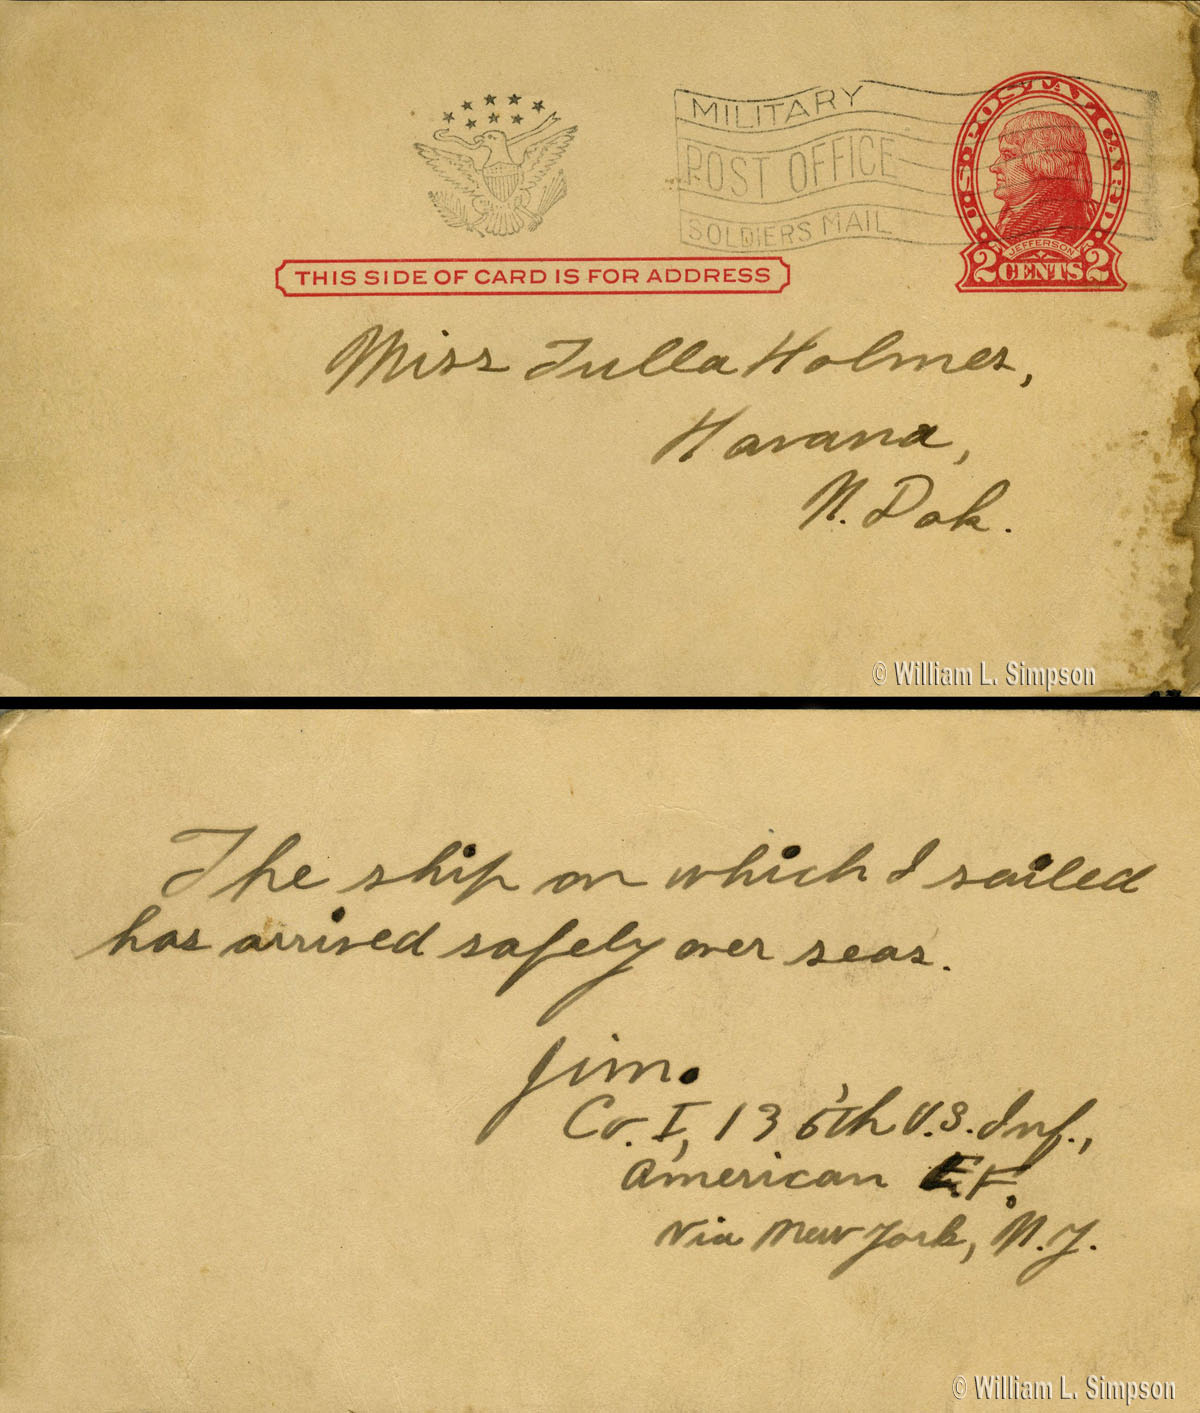 MILITARY
POST OFFICE
SOLDIERS MAIL
U.S. POSTAL CARD.
JEFFERSON
2 CENTS 2
THIS SIDE OF CARD IS FOR ADDRESS
Miss Tulla Holmes,
Havana,
N. Dak.
© William L. Simpson
The ship on which I sailed
has arrived safely over seas.
Jim.
Co. I, 136th U.S. Inf.,
American E.F.
Via New York, N.Y.
© William L. Simpson